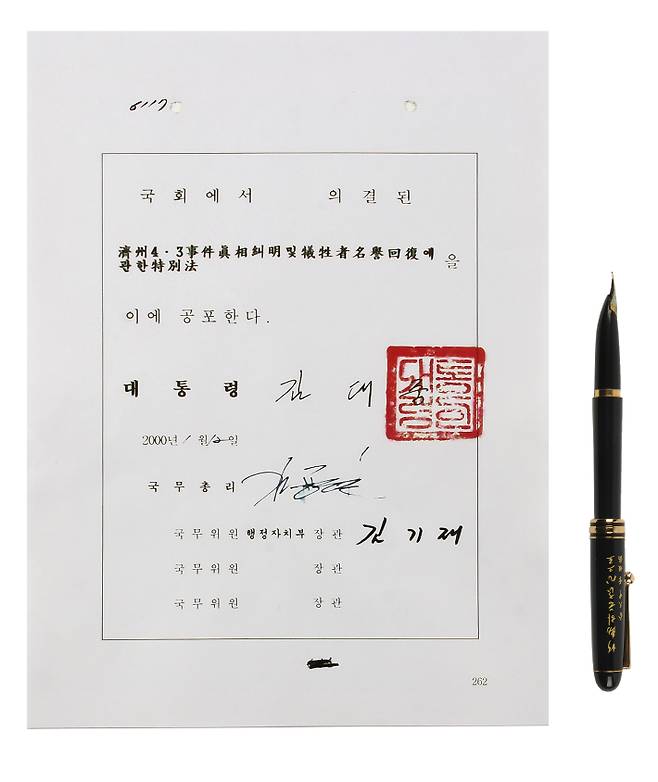 6117
국회에서 의결된
濟州4·3事件眞相糾明및犧牲者名譽回復에
관한特別法 을
이에 공포한다.
대통령 김대중
대통령인
2000년 1월 12일
국무총리
국무위원 행정자치부 장관 김기재
국무위원 장관
국무위원 장관
262